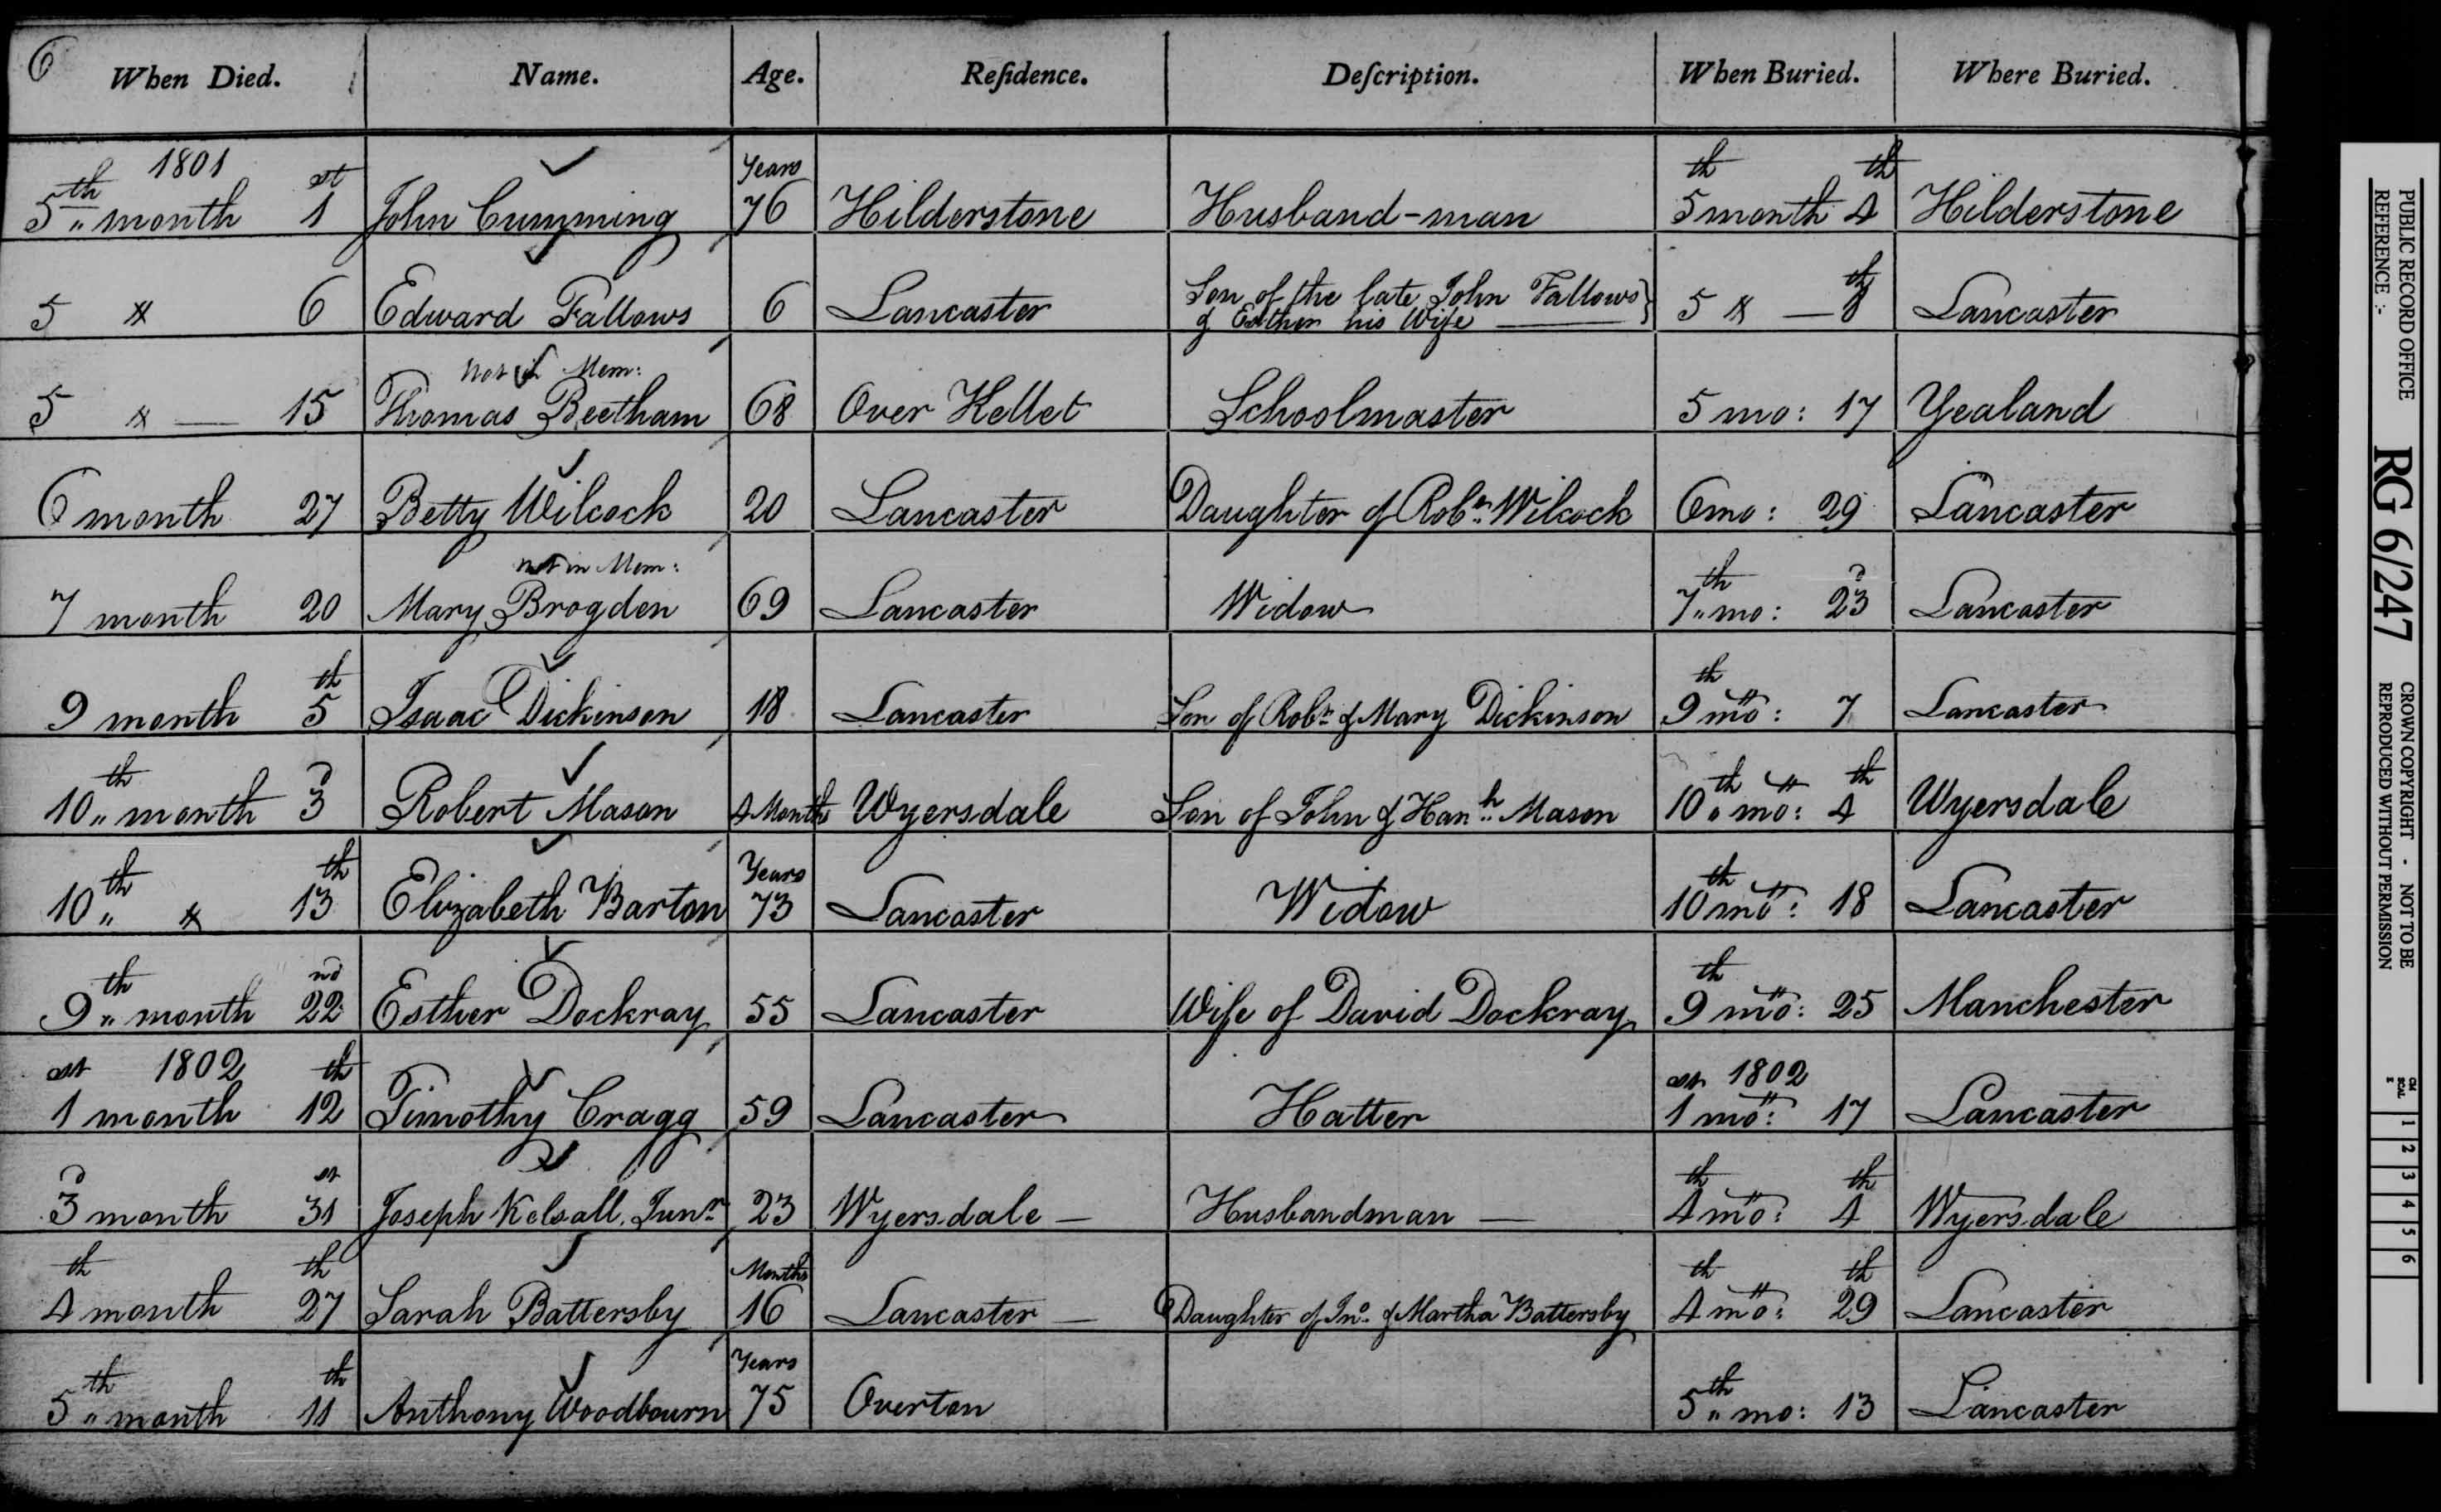 6
When Died. Name. Age. Reſidence. Deſcription. When Buried. Where Buried.
1801
5th month 1st John Cumming Years 76 Hilderstone Husband-man 5th month 4th Hilderstone
5 " 6 Edward Fallows 6 Lancaster Son of the late John Fallows & Esther his Wife 5 " — 8th Lancaster
not in Mem:
5 " — 15 Thomas Beetham 68 Over Kellet Schoolmaster 5 mo: 17 Yealand
6 month 27 Betty Wilcock 20 Lancaster Daughter of Robt. Wilcock 6 mo: 29 Lancaster
not in Mem:
7 month 20 Mary Brogden 69 Lancaster Widow 7th mo: 23d Lancaster
9 month 5th Isaac Dickinson 18 Lancaster Son of Robt. & Mary Dickinson 9th mo: 7 Lancaster
10th month 3d Robert Mason 4 Month Wyersdale Son of John & Hanh. Mason 10th mo: 4th Wyersdale
10th " 13th Elizabeth Barton Years 73 Lancaster Widow 10th mo: 18 Lancaster
9th month 22nd Esther Dockray 55 Lancaster Wife of David Dockray 9th mo: 25 Manchester
1802 1802
1st month 12th Timothy Cragg 59 Lancaster Hatter 1st mo: 17 Lancaster
3d month 31st Joseph Kelsall, Junr. 23 Wyersdale — Husbandman — 4th mo: 4th Wyersdale
4th month 27th Sarah Battersby Months 16 Lancaster — Daughter of Jno. & Martha Battersby 4th mo: 29th Lancaster
5th month 11th Anthony Woodbourn Years 75 Overton 5th mo: 13 Lancaster
PUBLIC RECORD OFFICE
REFERENCE :-
RG 6/247
CROWN COPYRIGHT - NOT TO BE
REPRODUCED WITHOUT PERMISSION
1 2 3 4 5 6